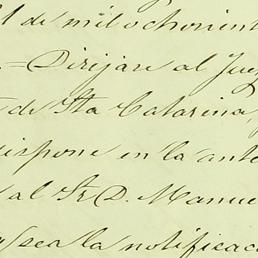 de mil ochocient
= Dirijase al Jue
de Sta Catarina,
dispone en la ante
al Sr D. Manue
sea la notificac